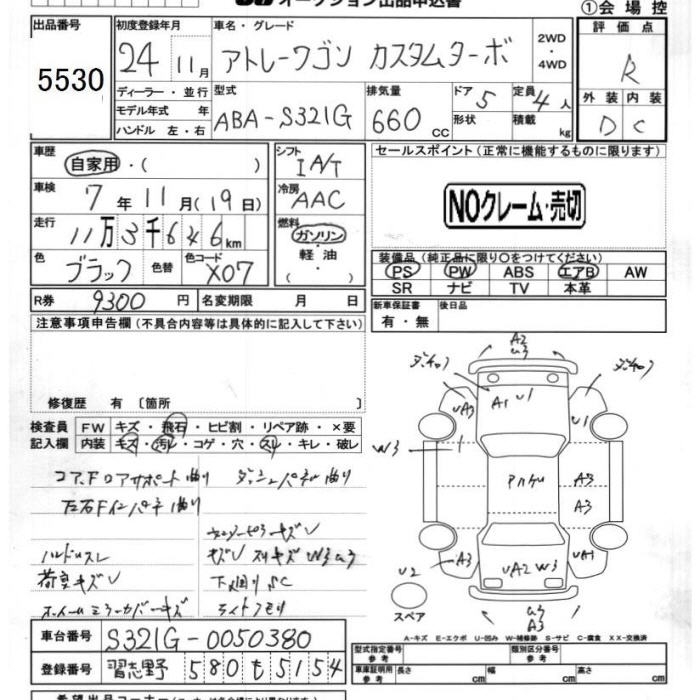 オークション出品申込書
①会場控
出品番号
5530
初度登録年月
24 11月
車名・グレード
アトレーワゴン カスタムターボ
2WD
・
4WD
評価点
R
外装 内装
D C
ディーラー・並行
モデル年式 年
ハンドル 左・右
型式
ABA-S321G
排気量
660 cc
ドア 5
形状
定員 4人
積載 kg
車歴
自家用・( )
車検
7年11月(19日)
走行
11万3千646km
色
ブラック
色替
色コード
X07
シフト
IA/T
冷房
AAC
燃料
ガソリン・
軽油
( ・ )
セールスポイント(正常に機能するものに限ります)
NOクレーム・売切
装備品(純正品に限り〇をつけてください)
PS PW ABS エアB AW
SR ナビ TV 本革
R券 9300円 名変期限 月 日
新車保証書
有・無
後日品
注意事項申告欄(不具合内容等は具体的に記入して下さい)
修復歴 有〔箇所
検査員
記入欄
FW キズ・飛石・ヒビ割・リペア跡・×要
内装 キズ・汚れ・コゲ・穴・スリ・キレ・破レ
コア、Fロアサポート曲り ダッシュパネル曲り
左右Fインパネ曲り
ハンドルスレ
荷室キズU
下廻りSC
ライトクモリ
A2
U3
UA3
A1 U1
U1
W3
A3
A3
U2
A3
UA2 W3
UA1
U3
A3
スペア
A-キズ E-エクボ U-凹み W-補修跡 S-サビ C-腐食 XX-交換済
車台番号 S321G-0050380
登録番号 習志野 580 も 5154
型式指定番号
参考
類別区分番号
参考
車庫証明用
参考
長さ cm 幅 cm 高さ cm
希望出品コーナー